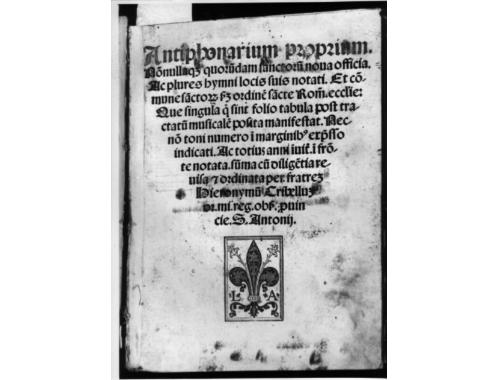 Antiphonarium proprium.
Nõnullaqȝ quorũdam sanctorũ noua officia.
Ac plures hymni locis suis notati. Et cõ-
mune sãctorȝ fȝ ordinẽ sãcte Rom̃. ecclie:
Que singula q̃ sint folio tabula post tra-
ctatũ musicalẽ posita manifestat. Nec
nõ toni numero ĩ marginibꝰ exp̃sso
indicati. Ac totius anni ĩuit. ĩ frõ-
te notata. sũma cũ diligẽtia re-
uisa ⁊ ordinata per fratreȝ
Hieronymũ Cribelluȝ
or. mi. reg. obs. ꝓuin
cie. S. Antonij.
L A